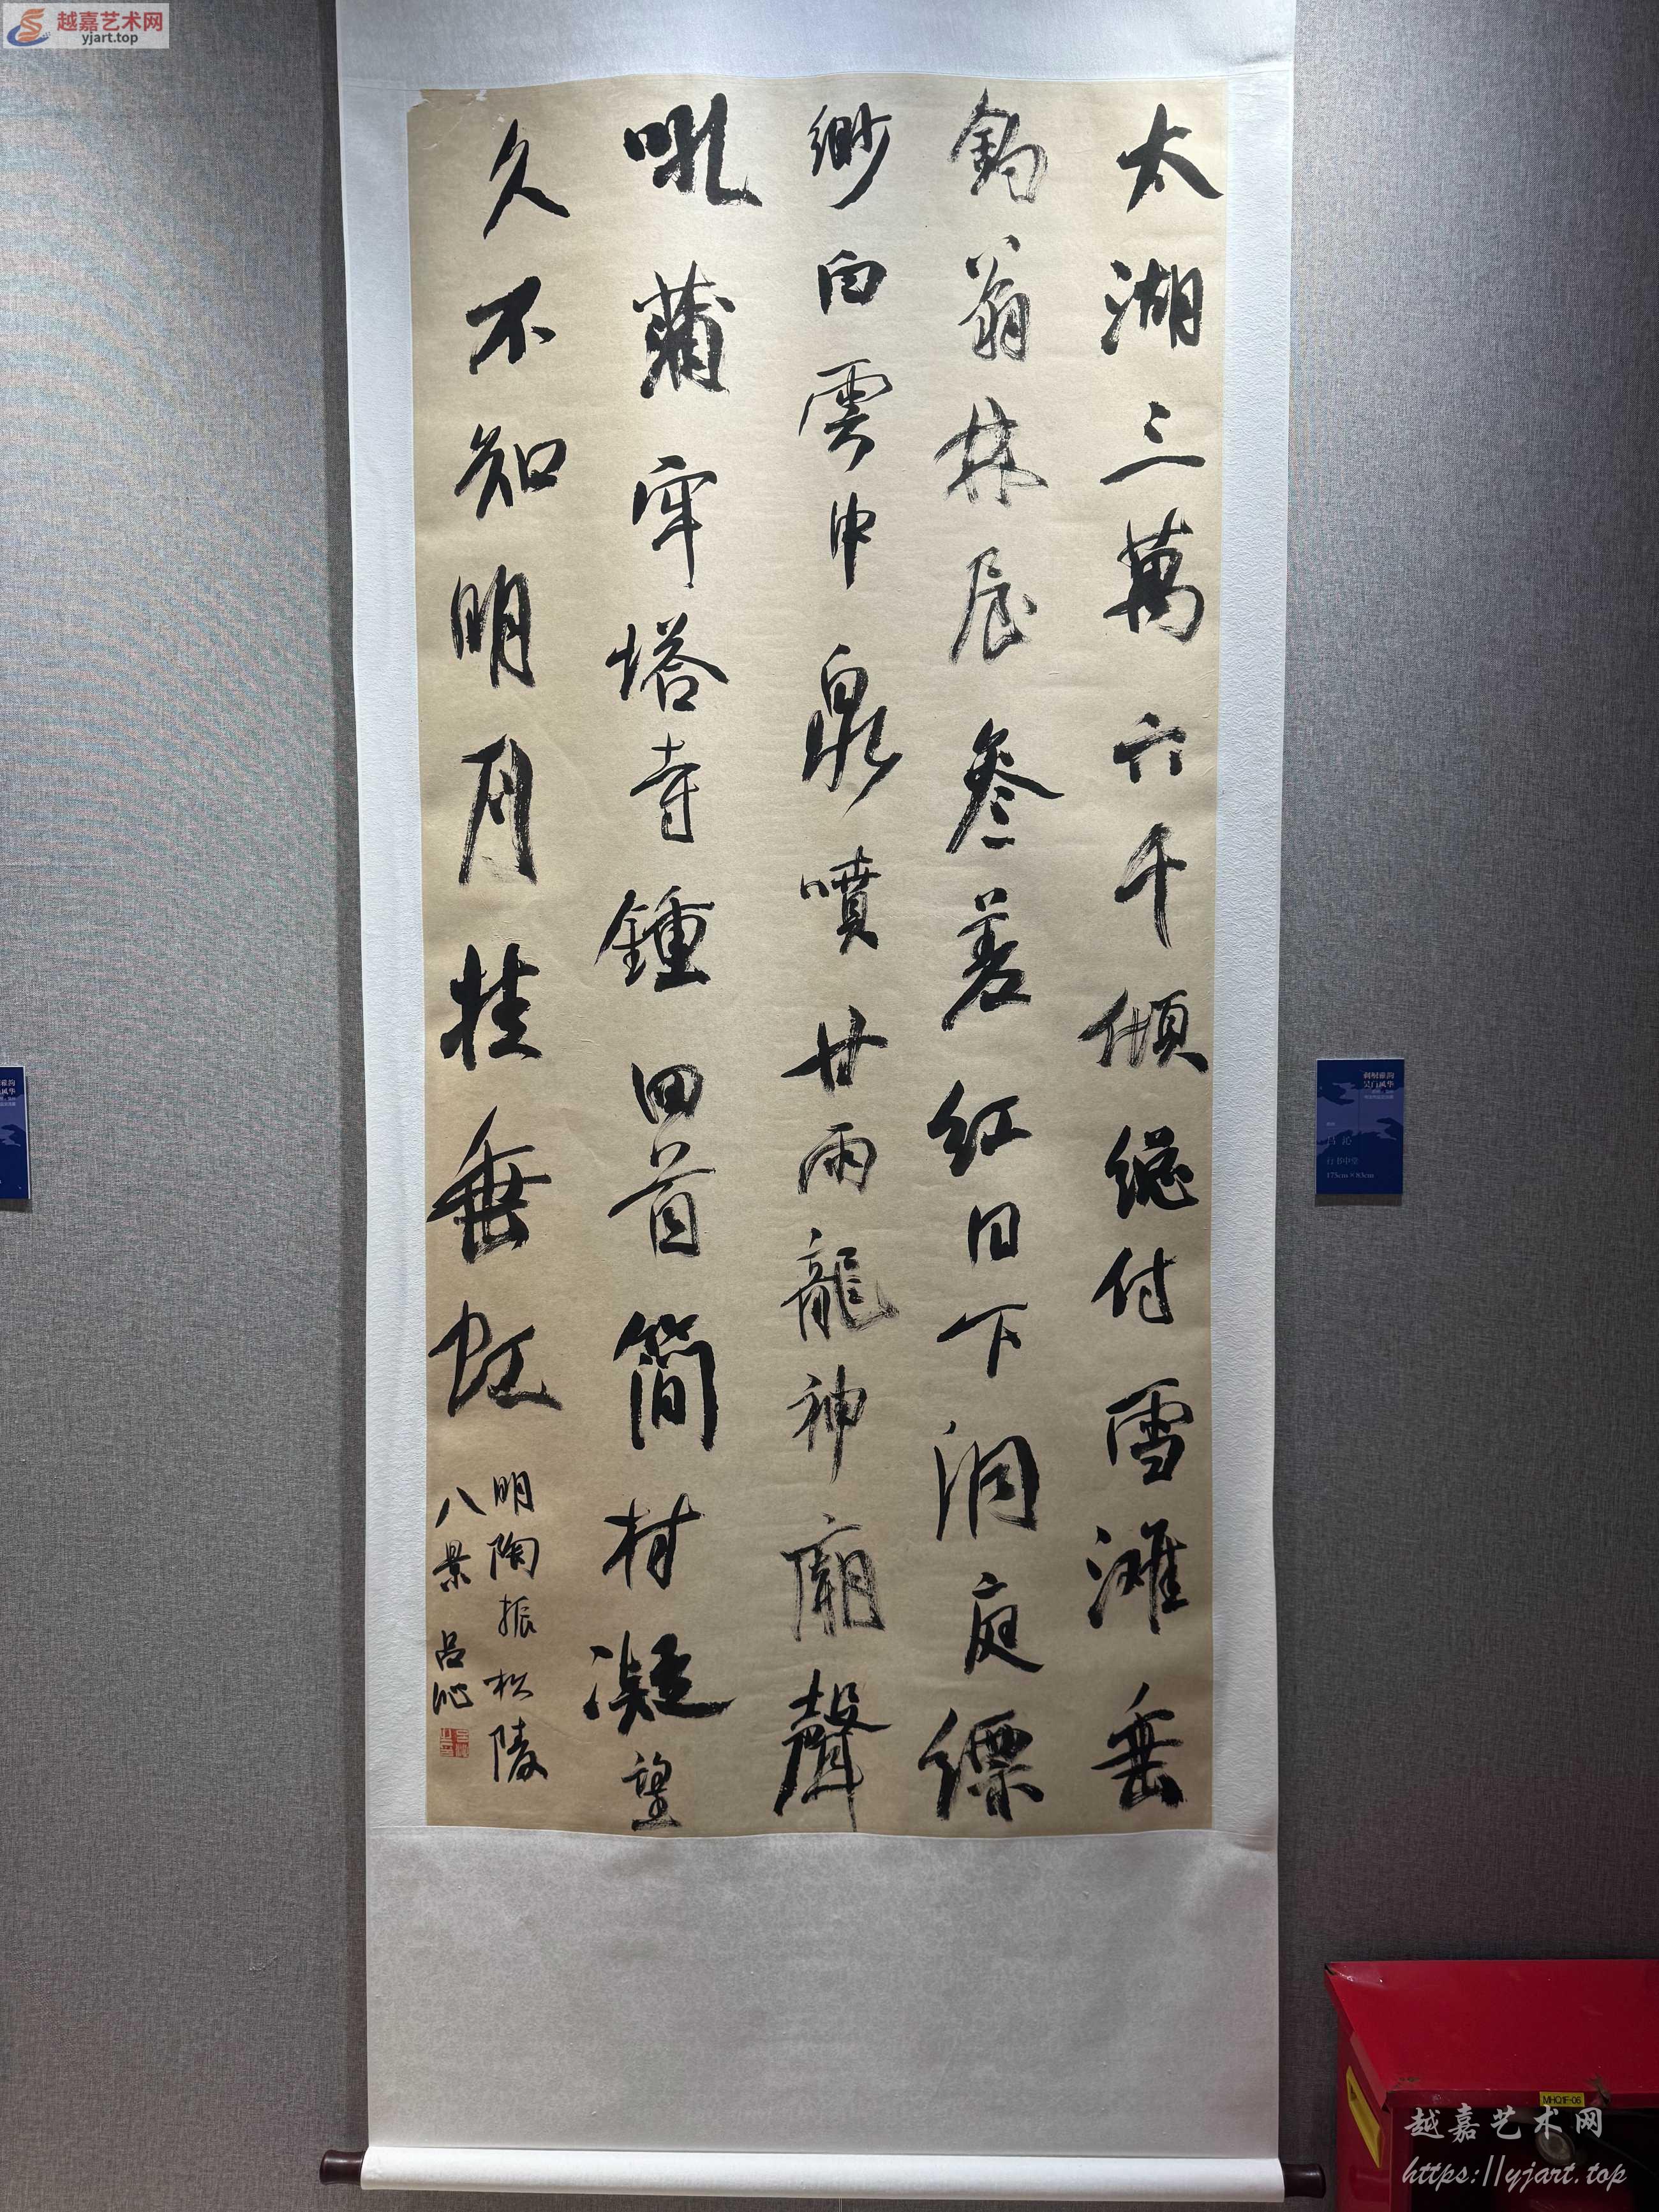 越嘉艺术网
yjart.top
太湖三萬六千傾總付雪灘垂
釣翁林屋參差紅日下洞庭縹
緲白雲中泉噴甘雨龍神廟聲
吼蒲牢塔寺鍾回首簡村凝望
久不知明月挂垂虹
明陶振松陵
八景 呂沁
吴门风华
吕沁
行书中堂
175cm×83cm
MHQ1F-06
越嘉艺术网
https://yjart.top